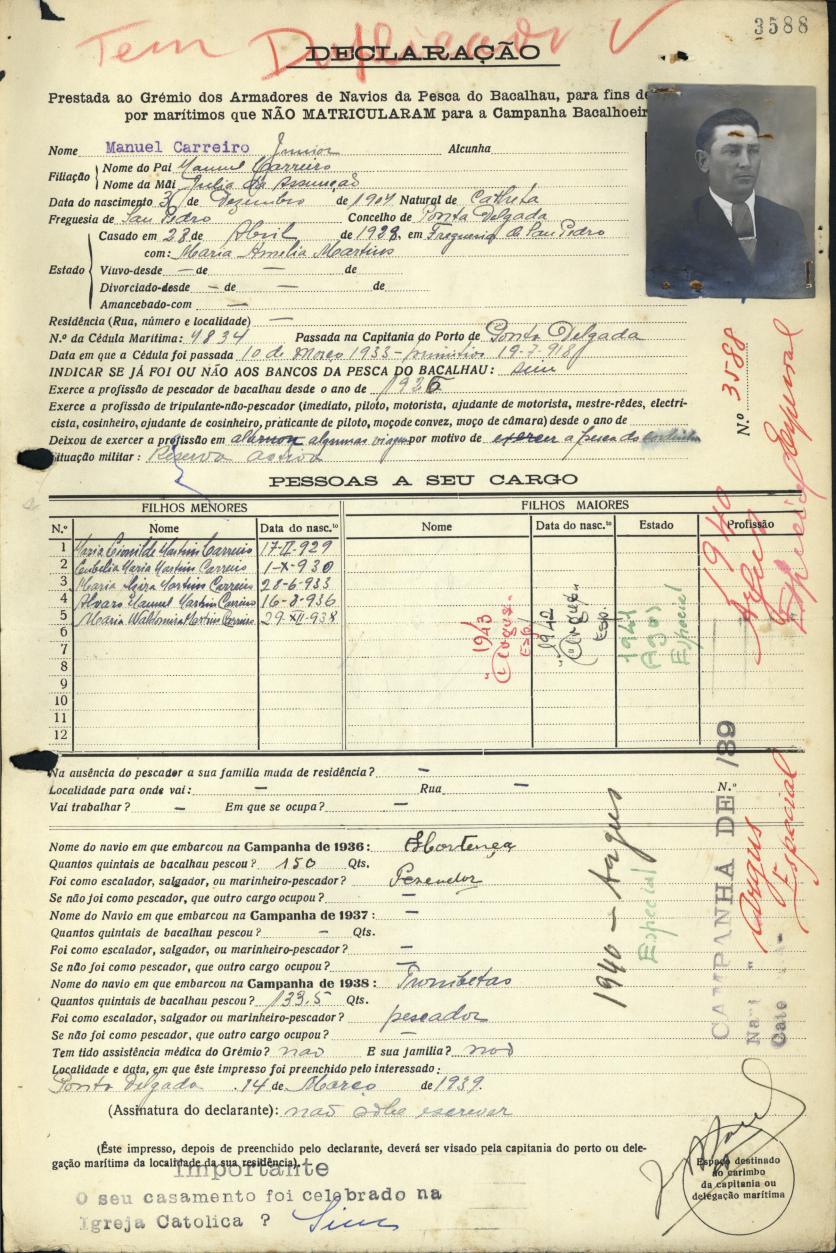 3588
Tem Duplicador
DECLARAÇÃO
Prestada ao Grémio dos Armadores de Navios da Pesca do Bacalhau, para fins de
por marítimos que NÃO MATRICULARAM para a Campanha Bacalhoeir
Nome Manuel Carreiro Junior Alcunha
Filiação Nome do Pai Manuel Carreiro
Nome da Mãi Julia da Assunção
Data do nascimento 3 de Dezembro de 1907 Natural de Calheta
Freguesia de San Pedro Concelho de Ponta Delgada
Casado em 28 de Abril de 1928, em Freguesia de San Pedro
com: Maria Amelia Martins
Estado Viuvo-desde — de — de
Divorciado-desde — de — de
Amancebado-com —
Residência (Rua, número e localidade) —
N.º da Cédula Marítima: 9834 Passada na Capitania do Porto de Ponta Delgada
Data em que a Cédula foi passada 10 de Março 1933
INDICAR SE JÁ FOI OU NÃO AOS BANCOS DA PESCA DO BACALHAU: sim
Exerce a profissão de pescador de bacalhau desde o ano de 1936
Exerce a profissão de tripulante-não-pescador (imediato, piloto, motorista, ajudante de motorista, mestre-rêdes, electri-
cista, cosinheiro, ajudante de cosinheiro, praticante de piloto, moço de convez, moço de câmara) desde o ano de
Deixou de exercer a profissão em algumas viagens por motivo de a pesca do
Situação militar: Reserva activa
N.º 3588
PESSOAS A SEU CARGO
FILHOS MENORES FILHOS MAIORES
N.º Nome Data do nasc.to Nome Data do nasc.to Estado Profissão
1 Maria Martins Carreiro 17-II-929
2 Maria Martins Carreiro 1-X-930
3 Maria Martins Carreiro 28-6-933
4 Alvaro Manuel Martins Carreiro 16-8-936
5 Maria Martins Carreiro 29-XII-938
6
7
8
9
10
11
12
1943 "Argus" Esp.
1942 "Argus" Esp.
1941 Argus Especial
1940 Argus Especial
Na ausência do pescador a sua família muda de residência? —
Localidade para onde vai: — Rua — N.º
Vai trabalhar? — Em que se ocupa? —
Nome do navio em que embarcou na Campanha de 1936: Hortense
Quantos quintais de bacalhau pescou? 150 Qts.
Foi como escalador, salgador, ou marinheiro-pescador? Pescador
Se não foi como pescador, que outro cargo ocupou? —
Nome do Navio em que embarcou na Campanha de 1937: —
Quantos quintais de bacalhau pescou? — Qts.
Foi como escalador, salgador, ou marinheiro-pescador? —
Se não foi como pescador, que outro cargo ocupou? —
Nome do navio em que embarcou na Campanha de 1938: Trombetas
Quantos quintais de bacalhau pescou? 133,5 Qts.
Foi como escalador, salgador ou marinheiro-pescador? pescador
Se não foi como pescador, que outro cargo ocupou? —
Tem tido assistência médica do Grémio? não E sua família? não
1940 - Argus
Especial
CAMPANHA DE 1939
Argus
Especial
Localidade e data, em que êste impresso foi preenchido pelo interessado:
Ponta Delgada 14 de Março de 1939.
(Assinatura do declarante): não sabe escrever
(Êste impresso, depois de preenchido pelo declarante, deverá ser visado pela capitania do porto ou dele-
gação marítima da localidade da sua residência).
Espaço destinado
ao carimbo
da capitania ou
delegação marítima
Importante
O seu casamento foi celebrado na
Igreja Catolica ? Sim